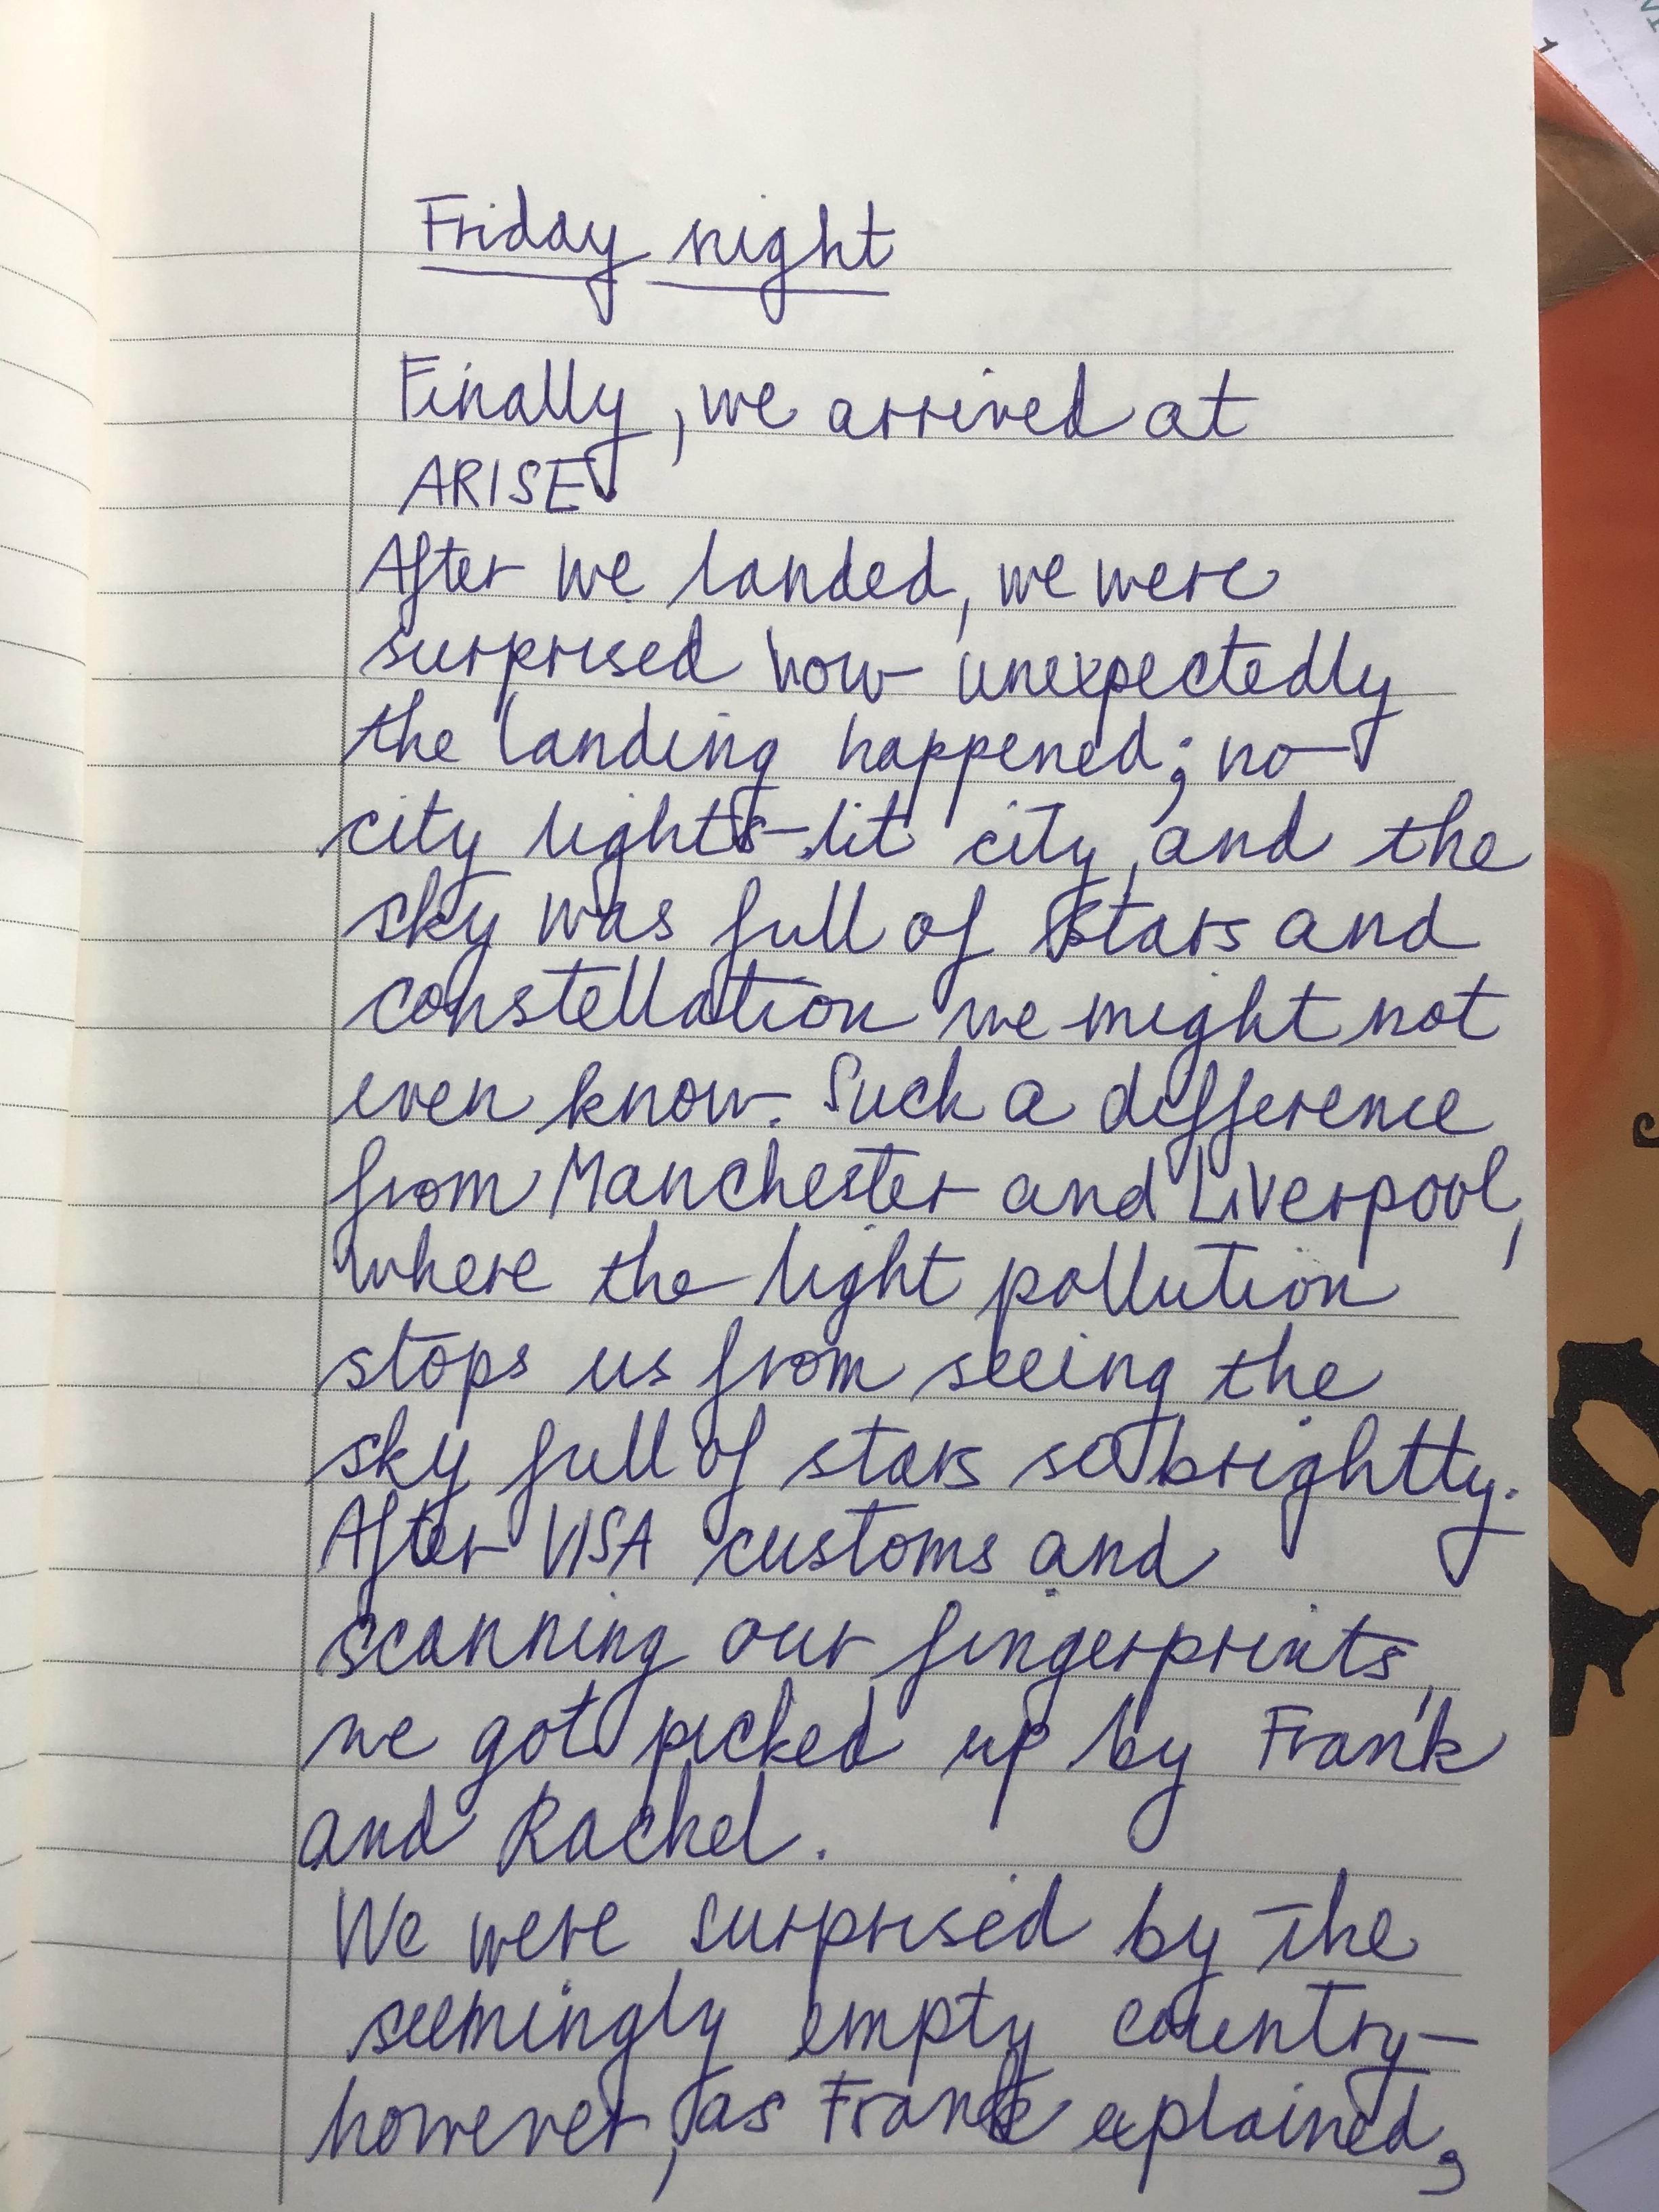 Friday night
Finally, we arrived at
ARISE.
After we landed, we were
surprised how unexpectedly
the landing happened; no
city lights-lit city, and the
sky was full of stars and
constellation we might not
even know. Such a difference
from Manchester and Liverpool,
where the light pollution
stops us from seeing the
sky full of stars so brightly.
After VISA customs and
scanning our fingerprints,
we got picked up by Frank
and Rachel.
We were surprised by the
seemingly empty country-
however, as Frank explained,